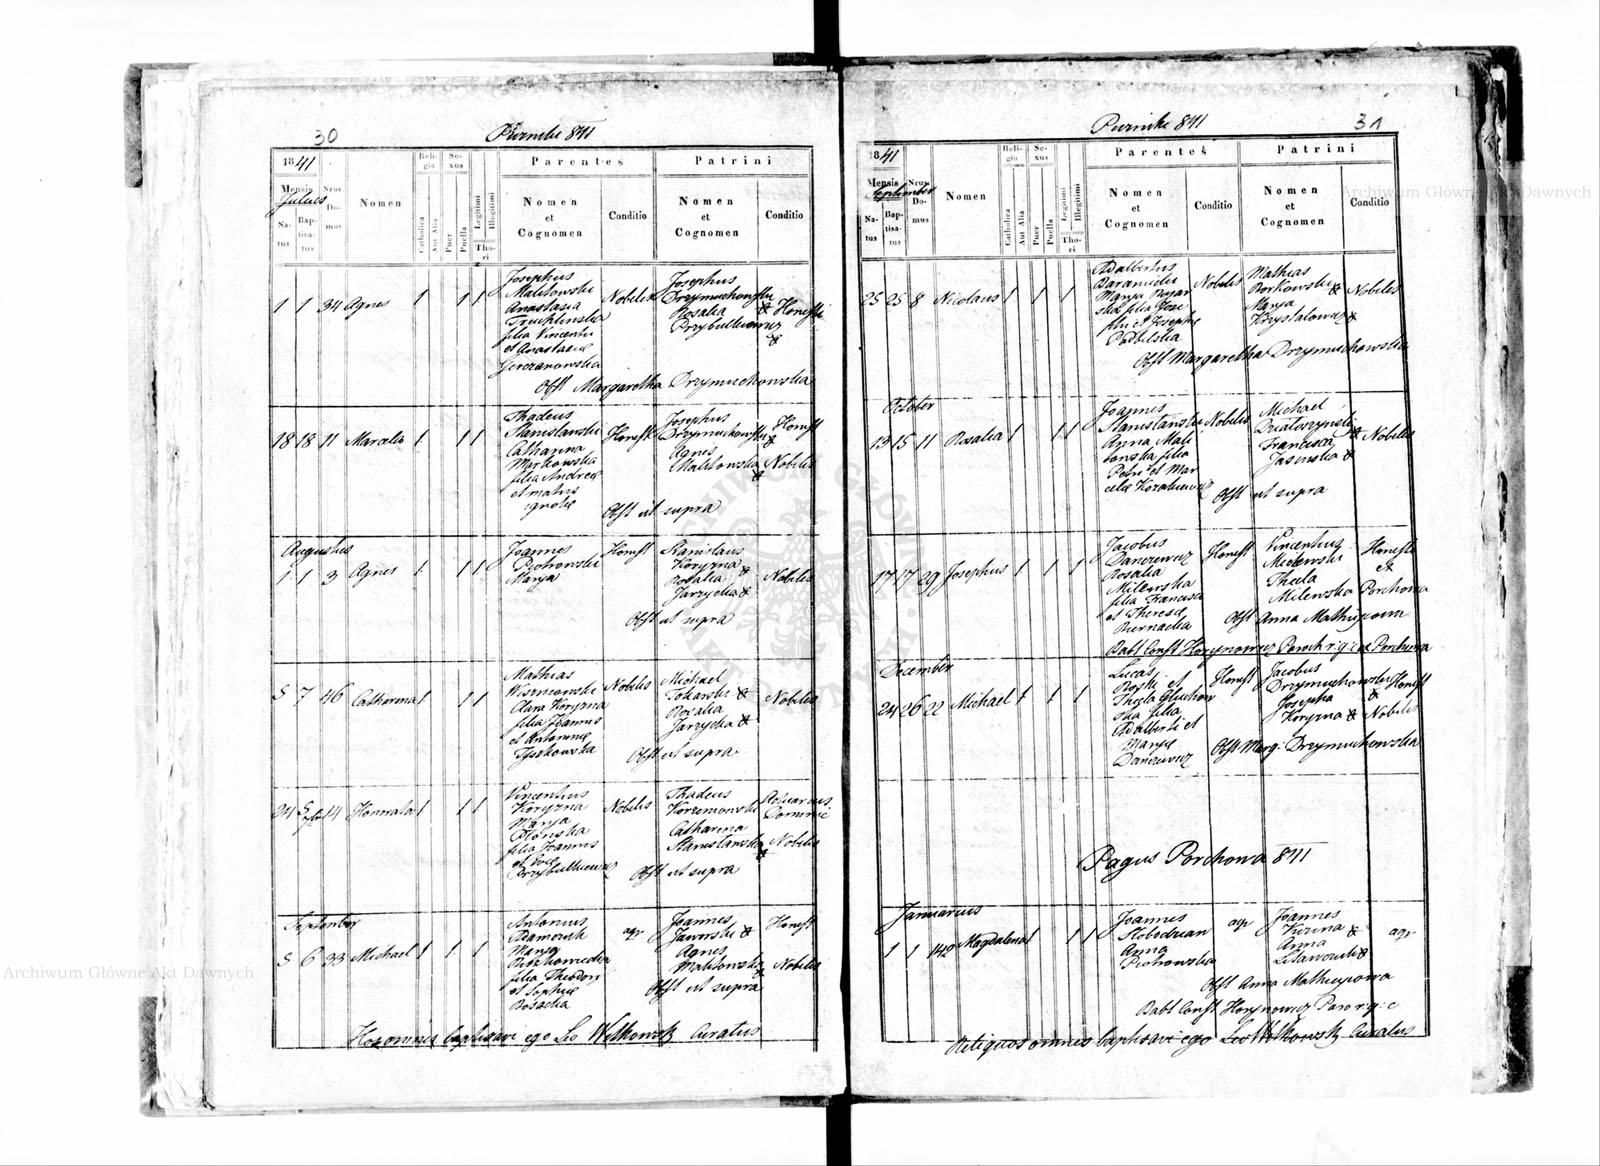 30
Piernike 841
1841
Mensis
Julius
Na-
tus
Bap-
tisa-
tus
Nrus
Do-
mus
Nomen
Reli-
gio
Catholica
Aut Alia
Se-
xus
Puer
Puella
Legitimi
Illegitimi
Tho-
ri
Parentes
Nomen
et
Cognomen
Conditio
Patrini
Nomen
et
Cognomen
Conditio
1 1 34 Agnes 1 1 1
Josephus
Malitowski
Anastasia
filia Vincentii
et Anastasiæ
Nobiles
Josephus
Drzymuchowski
Rosalia
&
Honesti
Obst Margaretha Drzymuchowska
18 18 11 Marcella 1 1 1
Thadeus
Stanislawski
Catharina
Markowska
filia Andreæ
et matris
ignotæ
Honest
Josephus
Drzymuchowski &
Agnes
Malitowska &
Honest
Nobilis
Obst ut supra
Augustus
1 1 3 Agnes 1 1 1
Joannes
Piotrowski
Marya
Honest
Stanislaus
Koryzna &
Rosalia
Jarzycka &
Nobiles
Obst ut supra
5 7 46 Catharina 1 1 1
Mathias
Wiszniowski
Clara Koryzna
filia Joannis
et Antoninæ
Tyszkowska
Nobiles
Michael
Tokarski &
Rosalia
Jarzycka &
Nobiles
Obst ut supra
24 5 14 Honorata 1 1 1
Vincentius
Koryzna
Marya
Plonska
filia Joannis
et Evæ
Nobiles
Thadeus
Catharina
Stanislawska &
Nobilis
Obst ut supra
September
5 6 33 Michael 1 1 1
Antonius
Marya
filia Theodori
et Sophiæ
agr
Joannes
Jaworski &
Agnes
Malitowska
Honest
Nobilis
Obst ut supra
Hos omnes baptisavi ego Leo Witkowski Curatus
31
Piernike 841
1841
Mensis
September
Na-
tus
Bap-
tisa-
tus
Nrus
Do-
mus
Nomen
Reli-
gio
Catholica
Aut Alia
Se-
xus
Puer
Puella
Legitimi
Illegitimi
Tho-
ri
Parentes
Nomen
et
Cognomen
Conditio
Patrini
Nomen
et
Cognomen
Conditio
25 25 8 Nicolaus 1 1 1
Adalbertus
Baraniecki
Marya
filia
et Josephæ
Podbilska
Nobiles
Mathias
Borkowski &
Marya
Krystalowicz &
Nobiles
Obst Margaretha Drzymuchowska
October
13 15 11 Rosalia 1 1 1
Joannes
Stanislawski
Anna Mali
towska filia
Petri et Mar
celæ
Nobiles
Michael
Francisca &
Jasinska &
Nobiles
Obst ut supra
17 17 29 Josephus 1 1 1
Jacobus
Danczewicz
Rosalia
Milewska
filia Francisci
et Theresæ
Biernacka
Honest
Vincentius
Milewski
Thecla
Milewska
Honesti
ex
Porchowa
Obst Anna Mathiyowa
Babt Const Horynowicz Paroch r: g: c ex Porchowa
December
24 26 22 Michael 1 1 1
Lucas
et
Thecla
ska filia
Adalberti et
Maryæ
Danczewicz
Honest
Jacobus
Drzymuchowski &
Josepha
Koryzna &
Honest
Nobilis
Obst Marg: Drzymuchowska
Pagus Porchowa 841
Januarius
1 1 142 Magdalena 1 1 1
Joannes
Anna
Piotrowska
agr
Joannes
&
Anna
&
agr
Obst Anna Mathiyowa
Babt Const Horynowicz Paro r: g: c
Reliquos omnes baptisavi ego Leo Witkowski Curatus
Archiwum Główne Akt Dawnych
Archiwum Główne Akt Dawnych